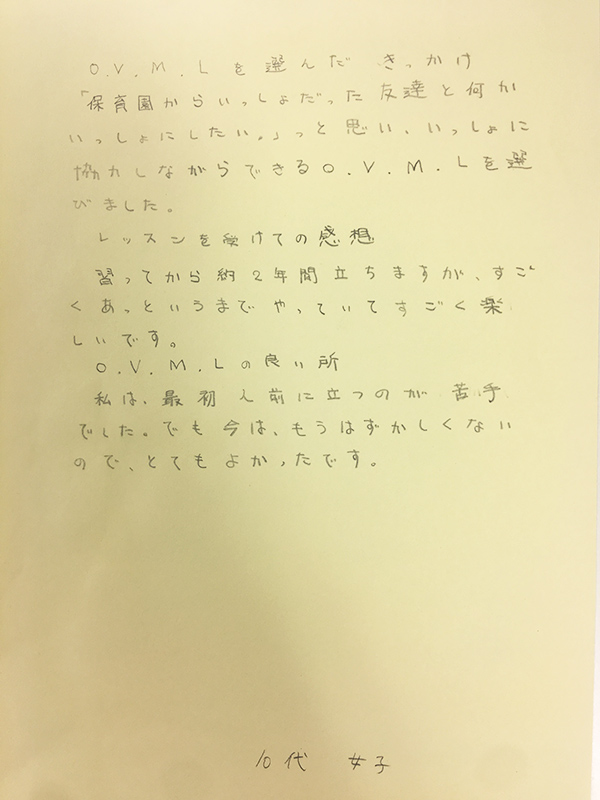 O.V.M.Lを選んだ きっかけ
「保育園からいっしょだった友達と何か
いっしょにしたい。」っと思い、いっしょに
協力しながらできるO.V.M.Lを選
びました。
レッスンを受けての感想
習ってから約2年間立ちますが、すご
くあっというまでやっていてすごく楽
しいです。
O.V.M.Lの良い所
私は、最初人前に立つのが苦手
でした。でも今は、もうはずかしくない
ので、とてもよかったです。
10代 女子